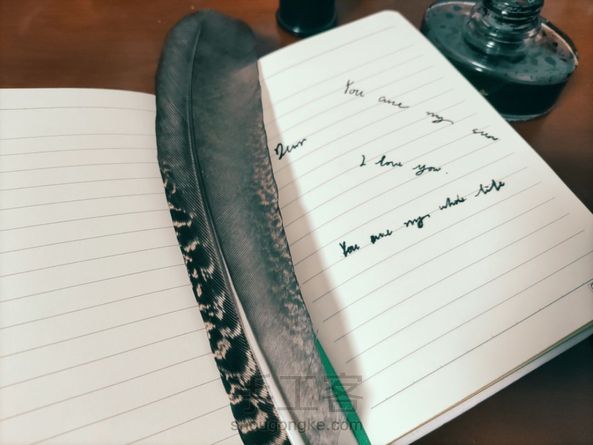 You are my
Dear
I love you.
You are my whole life
手工客
shougongke.com